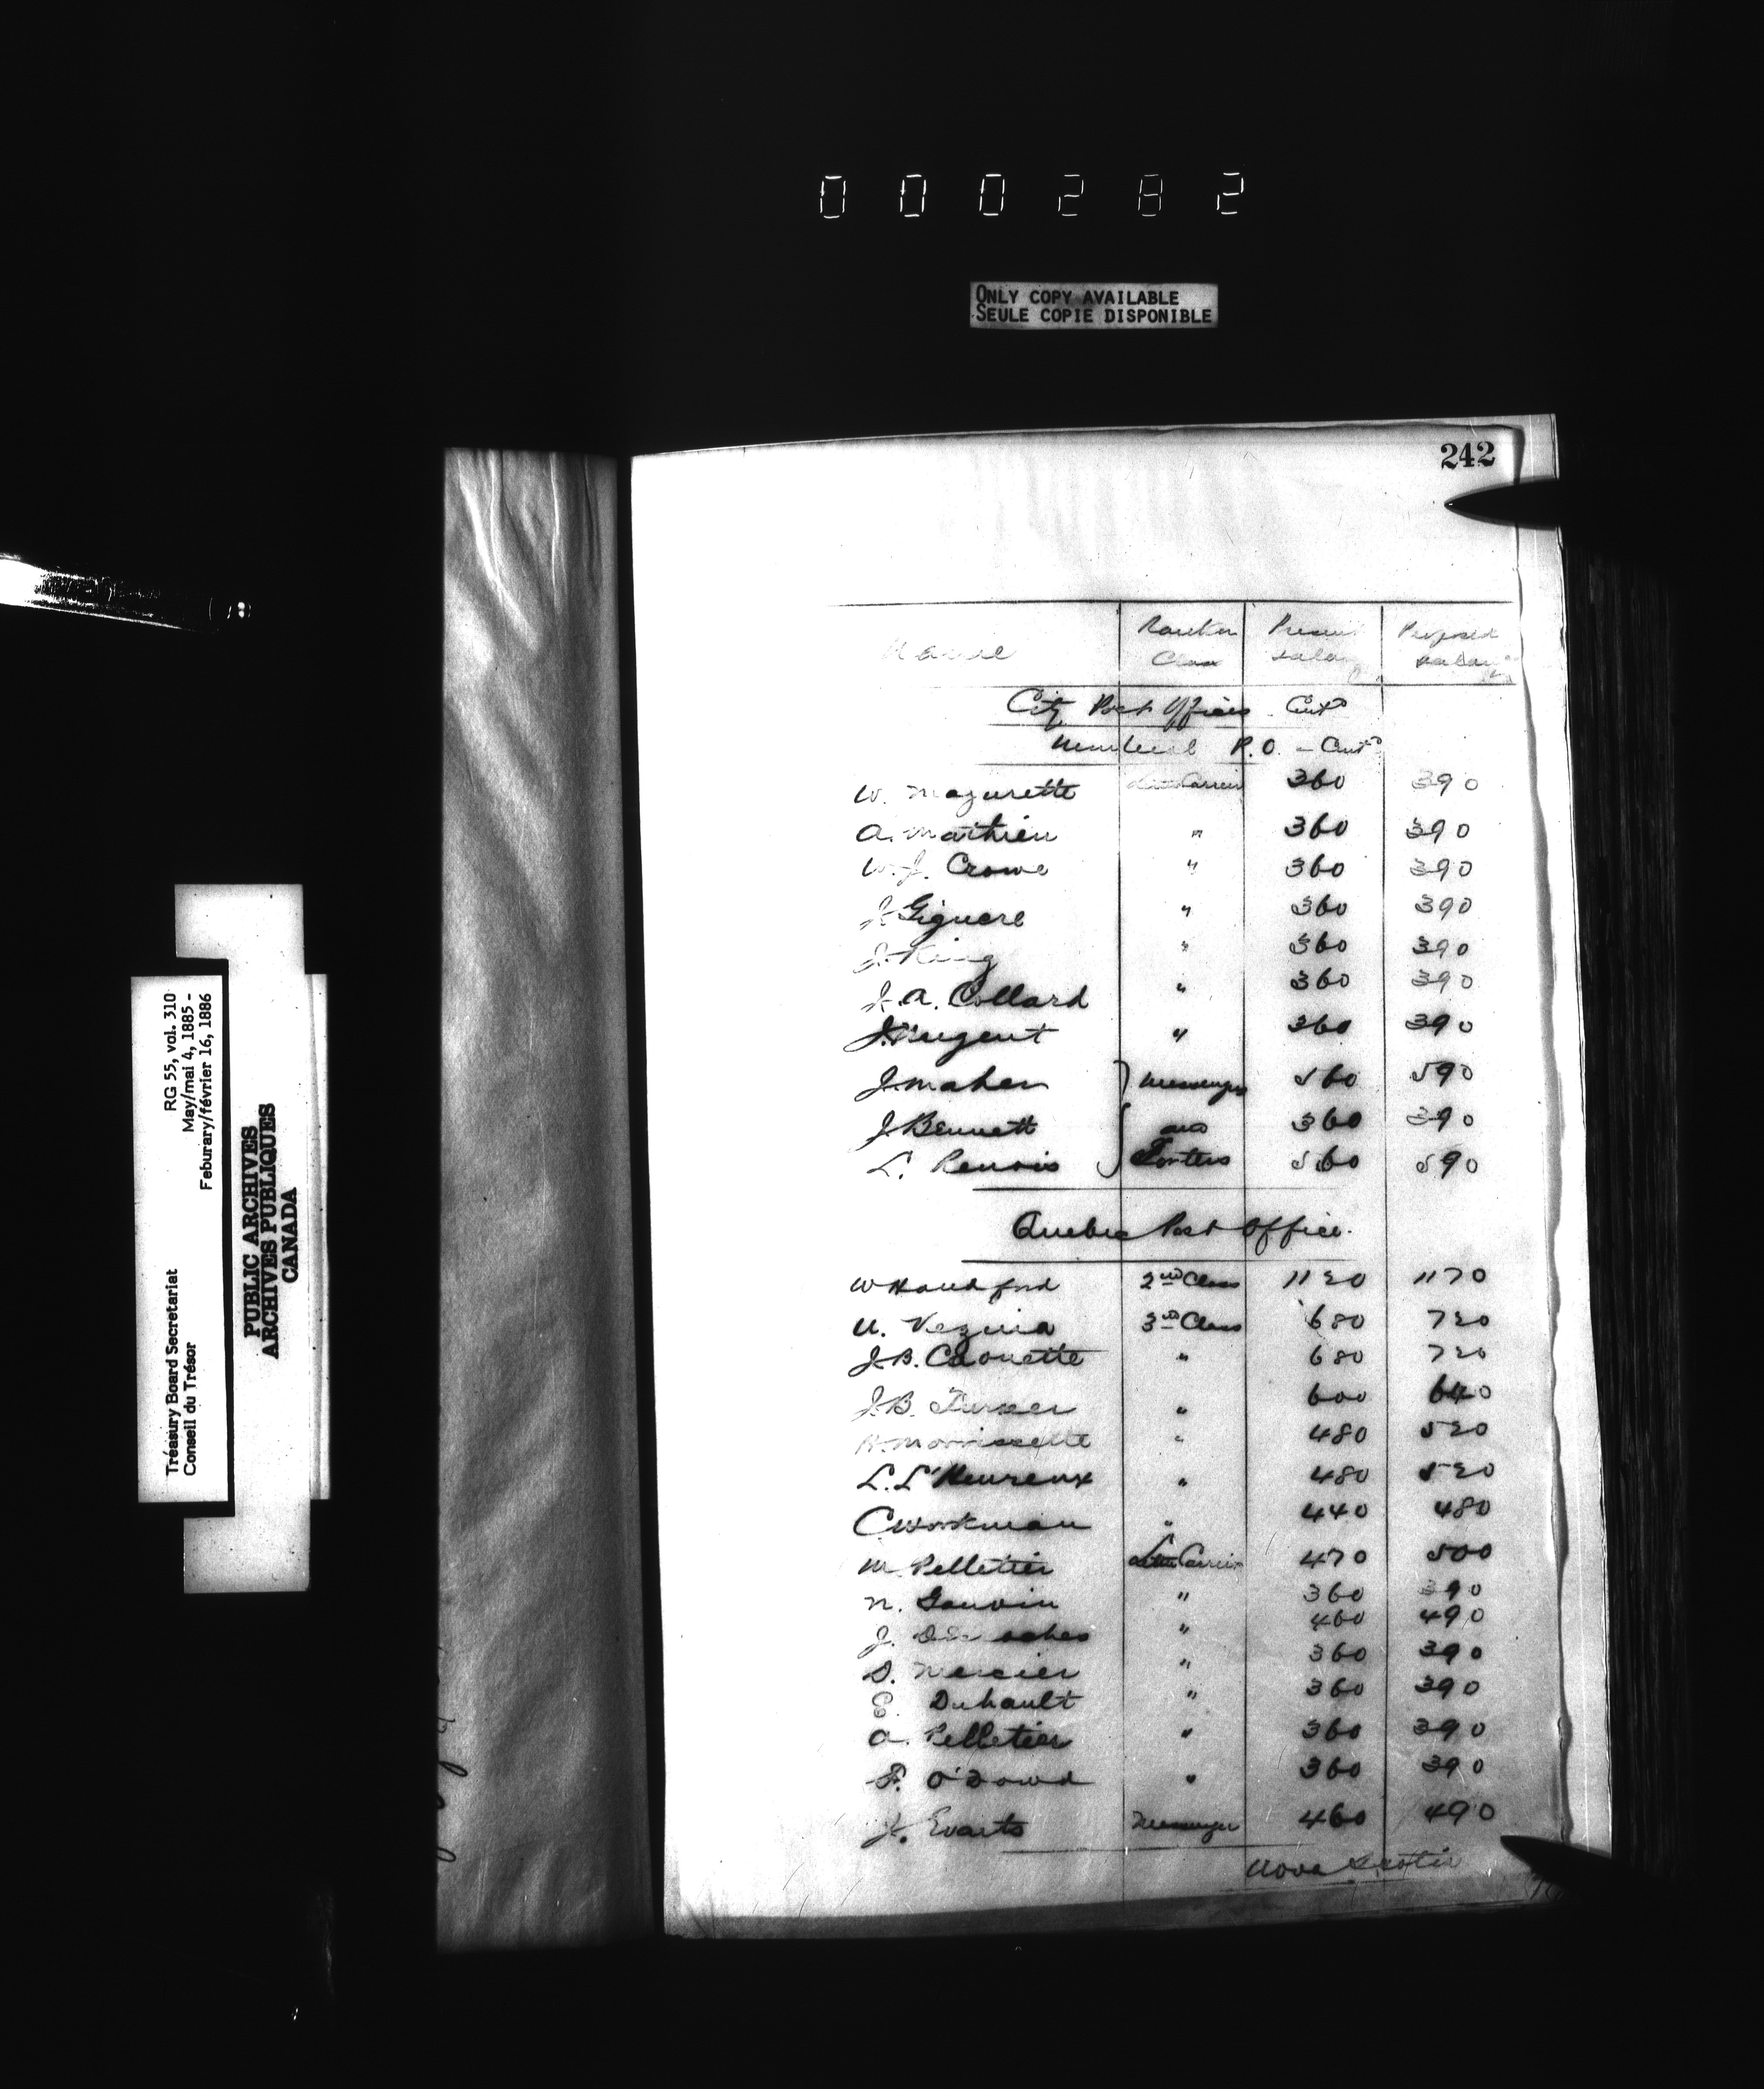 000282
ONLY COPY AVAILABLE
SEULE COPIE DISPONIBLE
242
Treasury Board Secretariat RG 55, vol. 310
Conseil du Trésor May/mai 4, 1885 -
Feburary/février 16, 1886
PUBLIC ARCHIVES
ARCHIVES PUBLIQUES
CANADA
Name Rank or Class Present salary Proposed salary
City Post Offices Cont'd
Montreal P.O. - Cont'd
W. Mazurette Letter Carrier 360 390
A. Mathieu " 360 390
W. J. Crowe " 360 390
J. Giguere " 360 390
J. King " 360 390
J. A. Collard " 360 390
J. Nugent " 360 390
J. Maher Messengers 560 590
J. Bennett and 360 390
L. Renois Porters 560 590
Quebec Post Office.
W Handford 2nd Class 1120 1170
U. Vezina 3rd Class 680 720
J. B. Caouette " 680 720
J. B. Turner " 600 640
Morrissette " 480 520
L. L'Heureux " 480 520
C Workman " 440 480
M. Pelletier Letter Carrier 470 500
N. Gauvin " 360 390
J. " 460 490
D. Mercier " 360 390
E. Duhault " 360 390
A. Pelletier " 360 390
P. O'Dowd " 360 390
J. Evarts Messenger 460 490
Nova Scotia